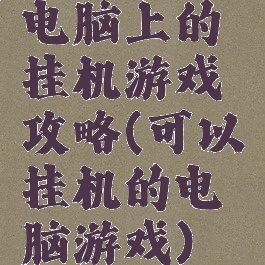 电脑上的
挂机游戏
攻略(可以
挂机的电
脑游戏)